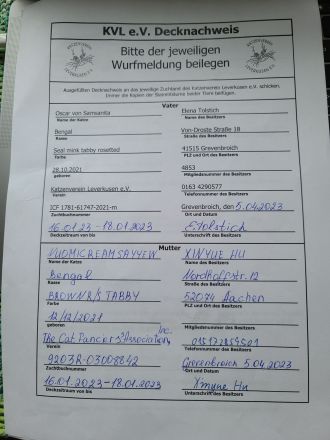 KVL e.V. Decknachweis
KATZENVEREIN
LEVERKUSEN e.V.
Bitte der jeweiligen
Wurfmeldung beilegen
KATZENVEREIN
LEVERKUSEN e.V.
Ausgefüllten Decknachweis an das jeweilige Zuchtamt des Katzenverein Leverkusen e.V. schicken.
Immer die Kopien der Stammbäume beider Tiere beifügen.
Vater
Oscar von Samsarella Elena Tolstich
Name der Katze Name des Besitzers
Bengal Von-Droste Straße 18
Rasse Straße des Besitzers
Seal mink tabby rosetted 41515 Grevenbroich
Farbe PLZ und Ort des Besitzers
28.10.2021 4853
geboren Mitgliedsnummer des Besitzers
Katzenverein Leverkusen e.V. 0163 4290577
Verein Telefonnummer des Besitzers
ICF 1781-61747-2021-m Grevenbroich, den 5.04.2023
Zuchtbuchnummer Ort und Datum
16.01.23 - 18.01.2023 E.Tolstich
Deckzeitraum von bis Unterschrift des Besitzers
Mutter
XINYUE HU
Name der Katze Name des Besitzers
Bengal Nordhoffstr. 12
Rasse Straße des Besitzers
TABBY 52074 Aachen
Farbe PLZ und Ort des Besitzers
12/12/2021
geboren Mitgliedsnummer des Besitzers
The Cat Fancers' Association, Inc.
Verein Telefonnummer des Besitzers
9203R-03008842 Grevenbroich 5.04.2023
Zuchtbuchnummer Ort und Datum
16.01.2023-18.01.2023 Xinyue Hu
Deckzeitraum von bis Unterschrift des Besitzers